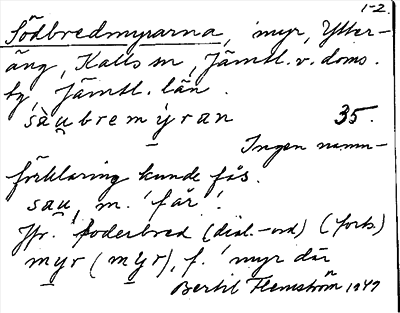 1-2.
Södbredmyrarna, myr, Ytter-
äng, Kalls sn, Jämtl. v. doms.
by, Jämtl. län.
sau̯bremýran 35.
Ingen namn-
förklaring kunde fås.
sau̯, m. 'får'.
Jfr. foderbred (dial.-ord) (forts.)
myr (mỳr), f. 'myr där
Bertil Flemström 1949